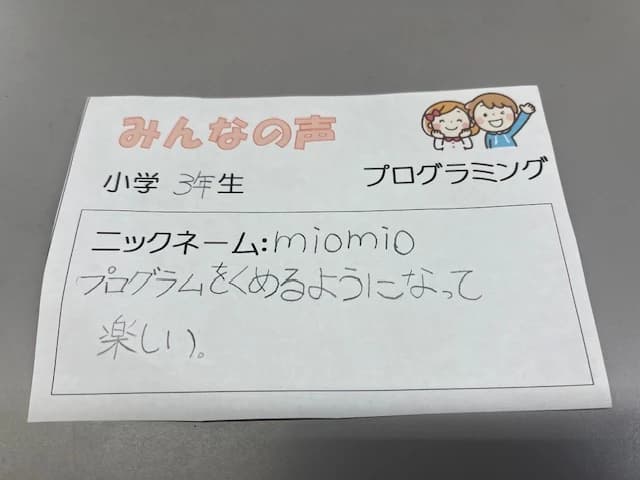 みんなの声
小学 3年生
プログラミング
ニックネーム:miomio
プログラムをくめるようになって
楽しい。